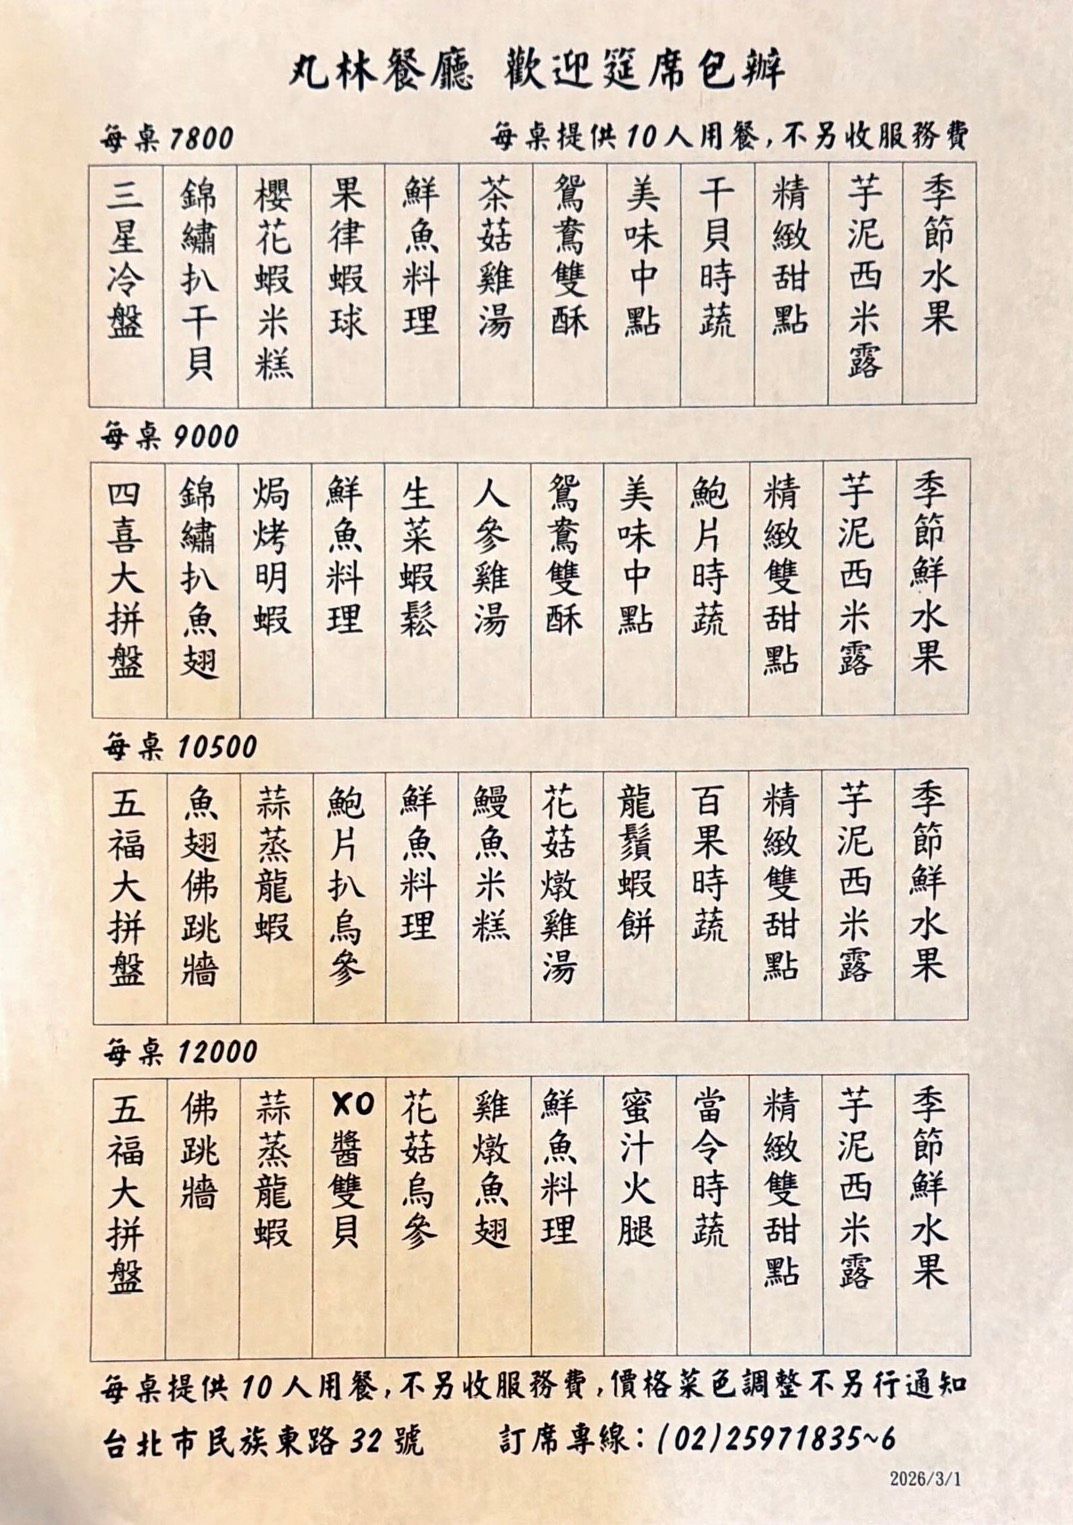 丸林餐廳 歡迎筵席包辦
每桌 7800
每桌提供 10 人用餐,不另收服務費
三星冷盤
錦繡扒干貝
櫻花蝦米糕
果律蝦球
鮮魚料理
茶菇雞湯
鴛鴦雙酥
美味中點
干貝時蔬
精緻甜點
芋泥西米露
季節水果
每桌 9000
四喜大拼盤
錦繡扒魚翅
焗烤明蝦
鮮魚料理
生菜蝦鬆
人參雞湯
鴛鴦雙酥
美味中點
鮑片時蔬
精緻雙甜點
芋泥西米露
季節鮮水果
每桌 10500
五福大拼盤
魚翅佛跳牆
蒜蒸龍蝦
鮑片扒烏參
鮮魚料理
鰻魚米糕
花菇燉雞湯
龍鬚蝦餅
百果時蔬
精緻雙甜點
芋泥西米露
季節鮮水果
每桌 12000
五福大拼盤
佛跳牆
蒜蒸龍蝦
XO醬雙貝
花菇烏參
雞燉魚翅
鮮魚料理
蜜汁火腿
當令時蔬
精緻雙甜點
芋泥西米露
季節鮮水果
每桌提供 10 人用餐,不另收服務費,價格菜色調整不另行通知
台北市民族東路 32 號
訂席專線:(02)25971835~6
2026/3/1